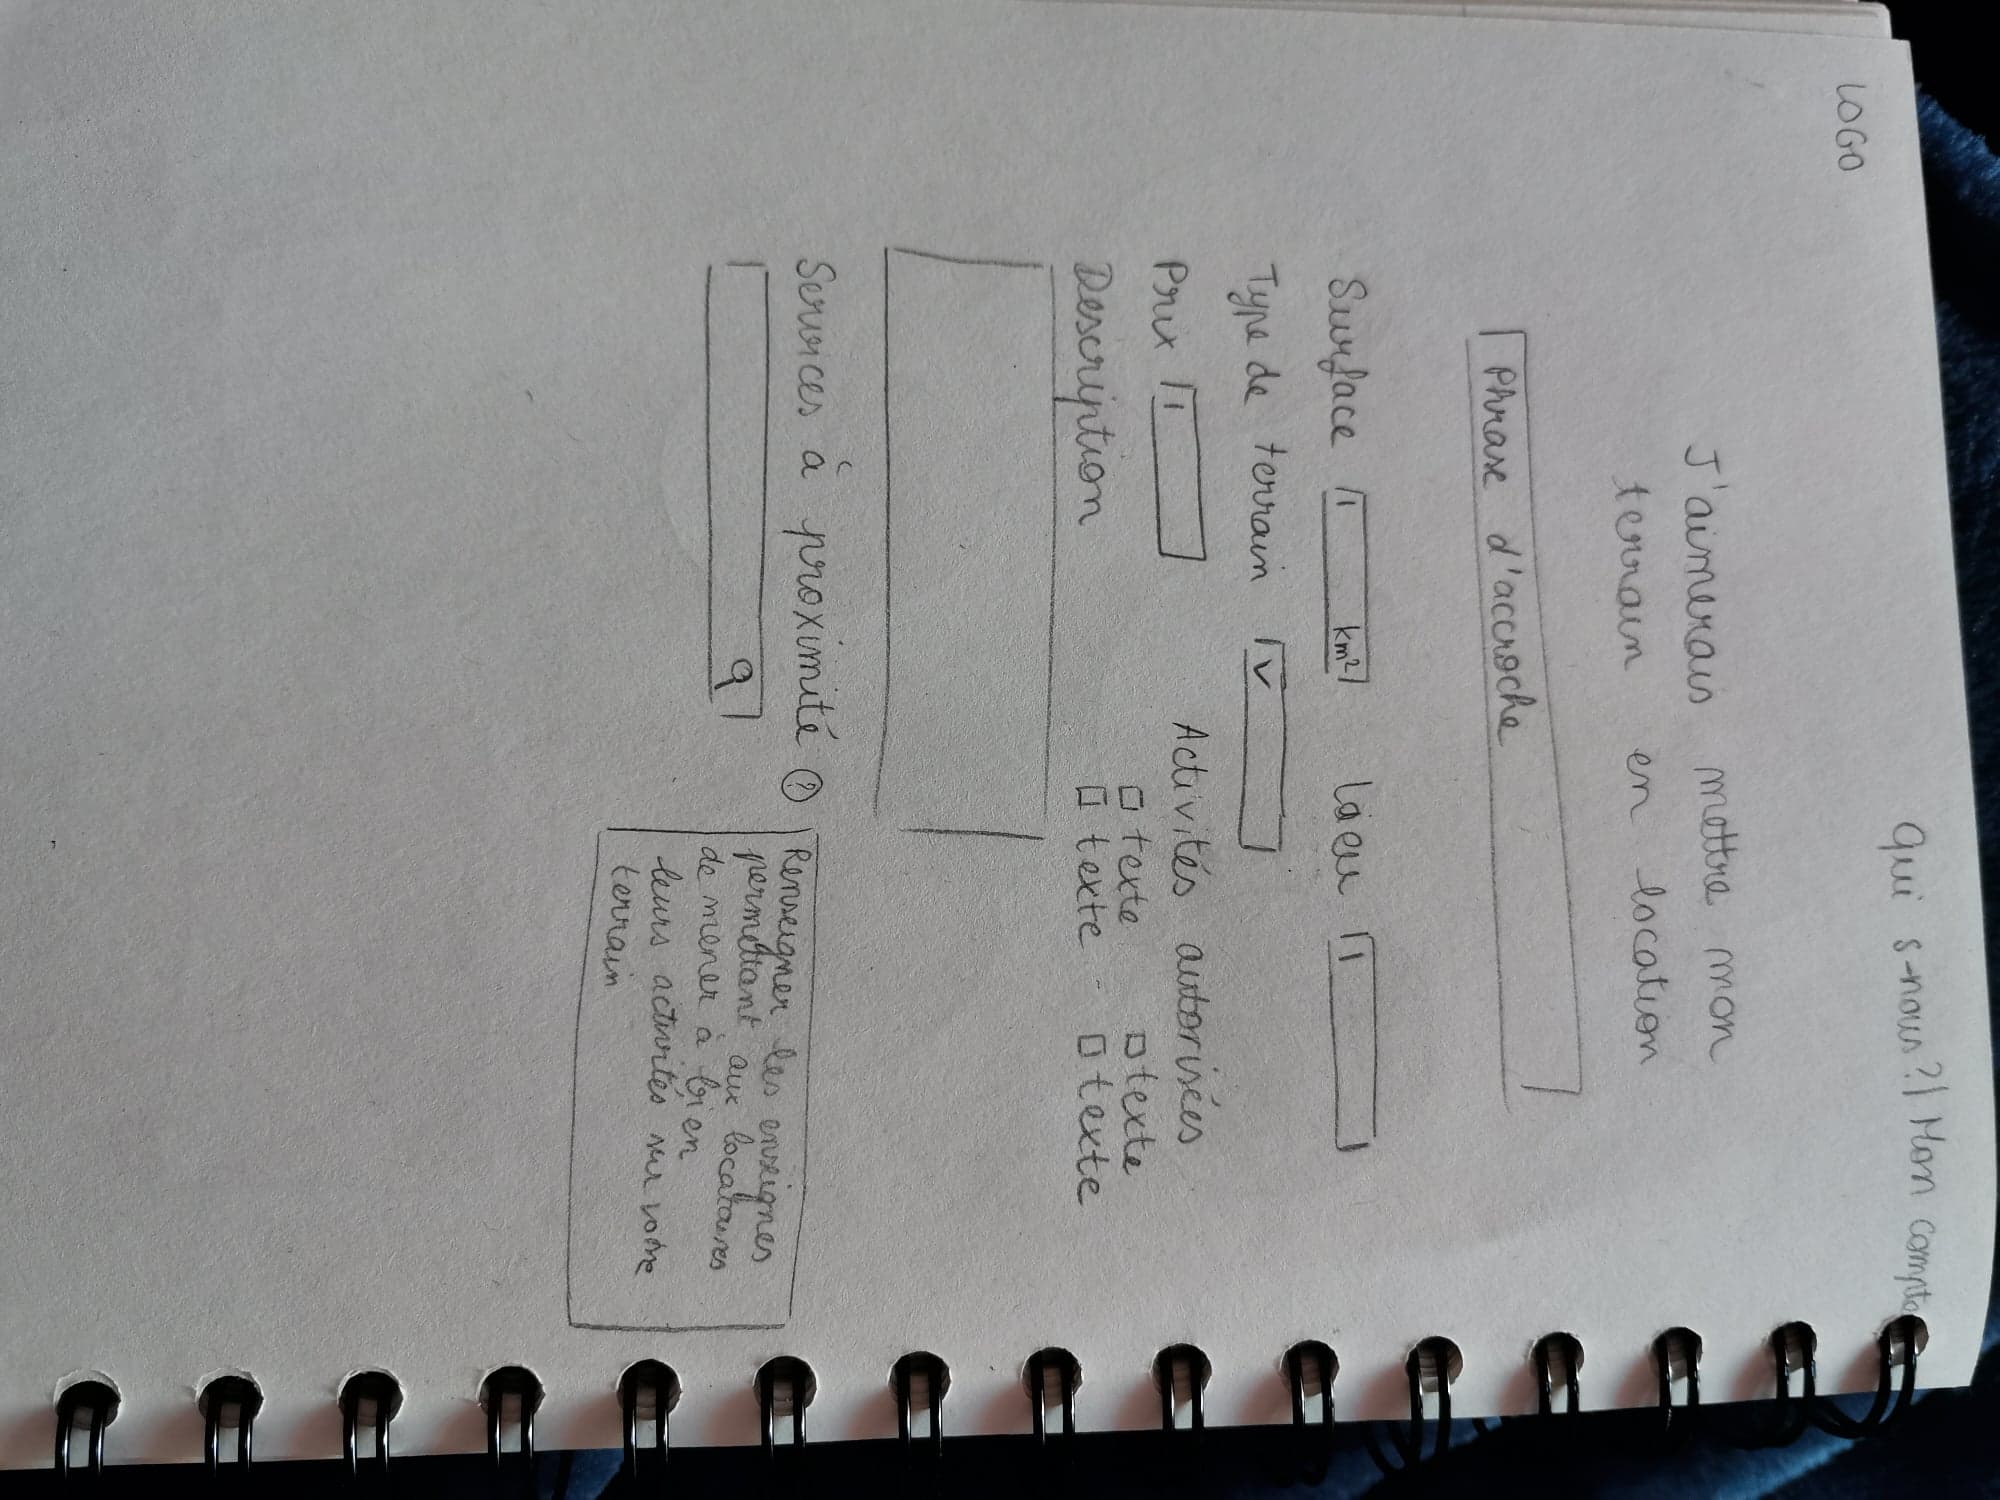 Qui s-nous? | Mon compte
LOGO
J'aimerais mettre mon
terrain en location
Phrase d'accroche
Surface km² Lieu
Type de terrain
Prix Activités autorisées
texte texte
Description texte texte
Services à proximité ?
Renseigner les enseignes
permettant aux locataires
de mener à bien
leurs activités sur votre
terrain